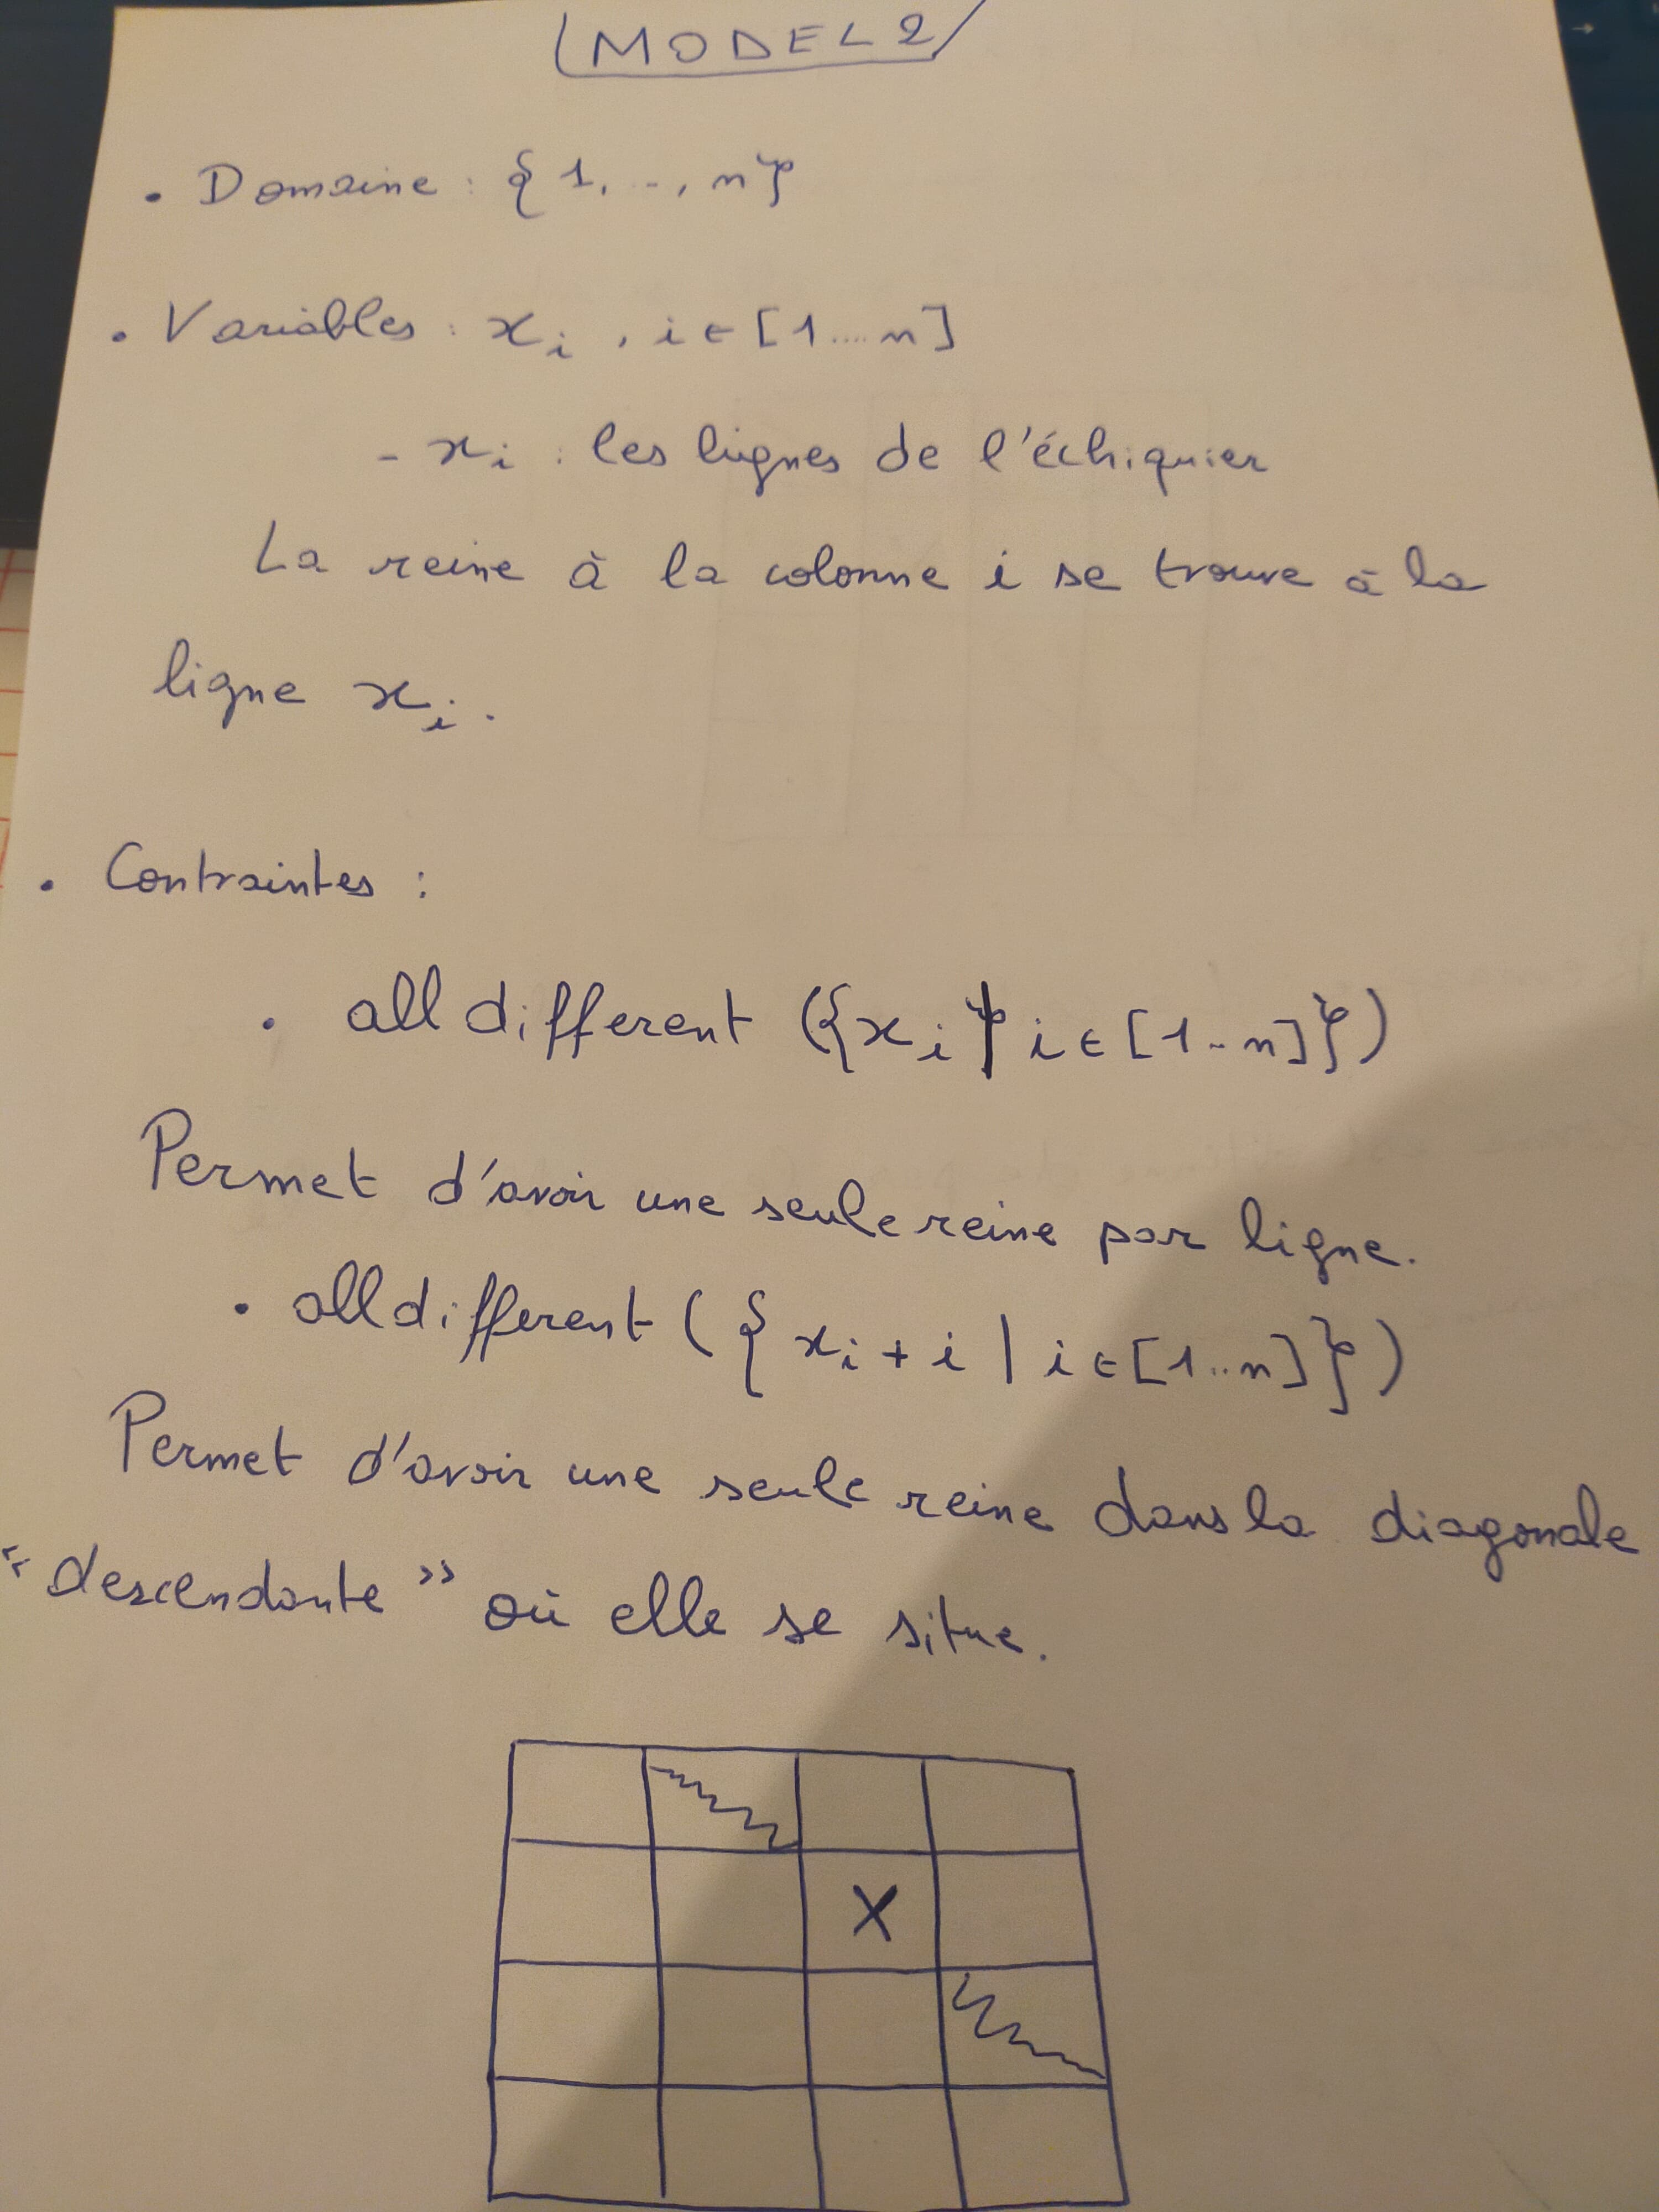 MODEL 2
• Domaine : {1, .., n}
• Variables : xi, i ∈ [1....n]
- xi : les lignes de l'échiquier
La reine à la colonne i se trouve à la
ligne xi.
• Contraintes :
• all different ({xi | i ∈ [1..n]})
Permet d'avoir une seule reine par ligne.
• alldifferent ({xi + i | i ∈ [1..n]})
Permet d'avoir une seule reine dans la diagonale
"descendante" où elle se situe.
X